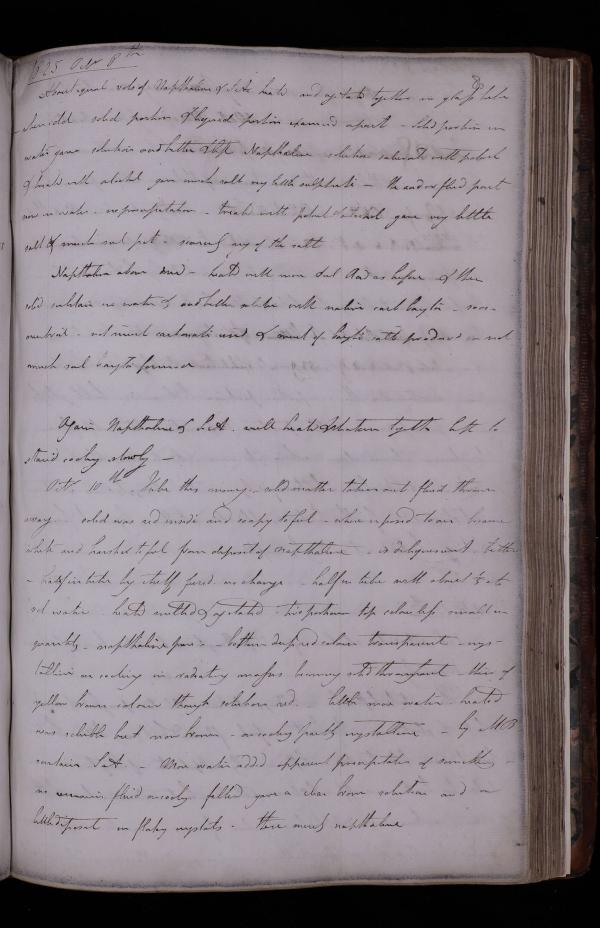 1825 Octr 8th
About equal vols of Napthaline & S.A. heated and agitated together in glass tube
when cold solid portion & liquid portion examined apart - Solid portion in
water gave solution and little Napthaline solution saturated with potash
& treated with alcohol gave much salt very little sulphate - the other fluid part
now in water - no precipitation - treated with potash & alcohol gave very little
salt & much sul pot - scarcely any of the salt
Napthaline above used - heated with more Sul Acid as before & then
solid substance in water & and solution with native carb baryta - soon
neutral - not much carbonate used & much of baryta salt produced - not
much sul baryta formed
Again Napthaline & S.A. well heated & shaken together left to
stand cooling slowly -
Octr. 10th. Tube this morning - solid matter taken out fluid thrown
away solid was red inside and soapy to feel - when exposed to air became
white and harsher to feel from deposit of napthaline - is deliquescent - bitter
- half in tube by itself fused no change - half in tube with about its
vol water heated melted & agitated - two portions top colourless small in
quantity - napthaline pure - bottom deep red colour transparent - crys-
talline on cooling in radiating masses becoming solid throughout - then of
yellow brown colour though solution red. little more water heated
was soluble but now brown - on cooling partly crystalline - by MB
contains S.A - More water added apparent precipitation of something -
remains fluid on cooling filtered gave a clear brown solution and a
little deposit in flakey crystals - these merely napthaline